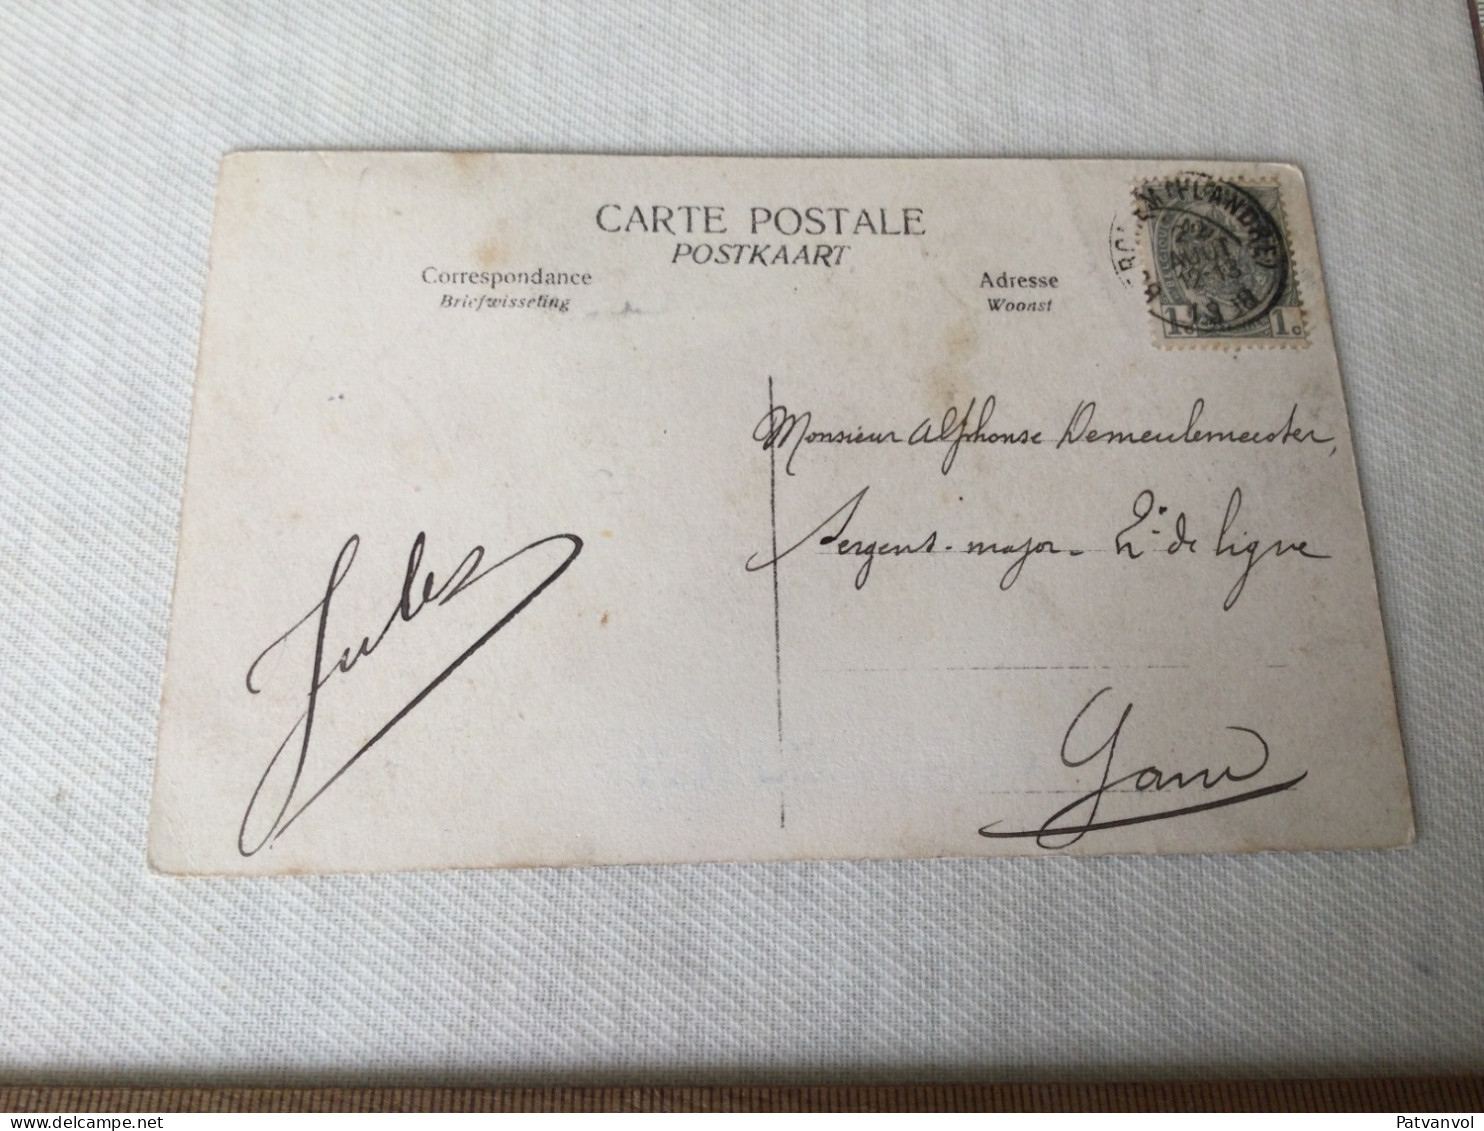 CARTE POSTALE
POSTKAART
Correspondance
Briefwisseling
Adresse
Woonst
(FLANDRE)
AOUT
12-13
1c 1c
Monsieur Alphonse Demeulemeester,
Sergent-major - 2e de ligne
Gand
Jules
Patvanvol